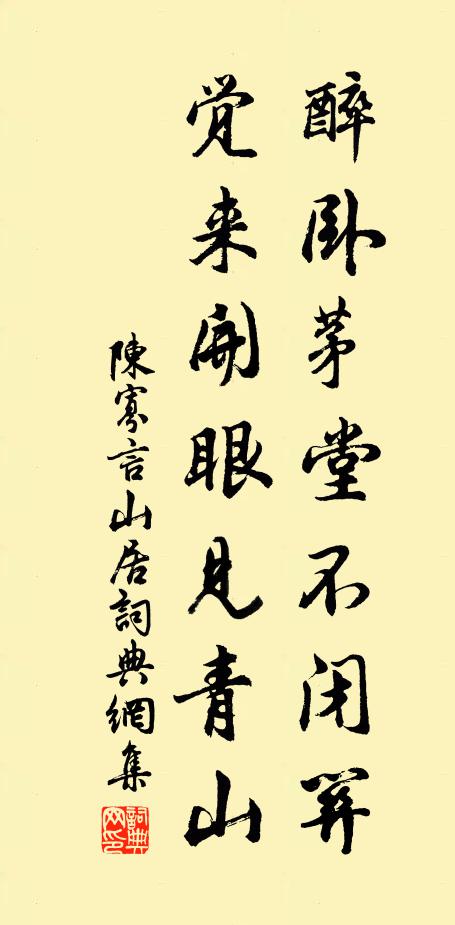 醉卧茅堂不闭关
觉来開眼見青山
陳寡言山居詞典網集
詞典网印